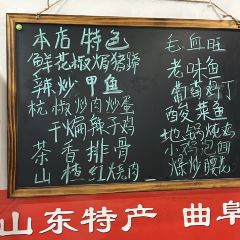 本店特色
鲜花椒焗猪蹄
辣炒甲鱼
杭椒炒肉炒蛋
干煸辣子鸡
茶香排骨
山楂红烧肉
毛血旺
老味鱼
葡萄鸡丁
酸菜鱼
地锅炖鸡
小鸡泡面
爆炒腰花
山东特产 曲阜